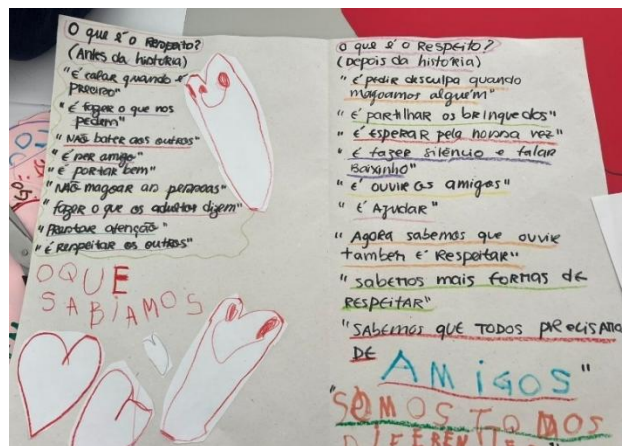 O que é o Respeito?
(Antes da história)
"É calar quando é
preciso"
"é fazer o que nos
pedem"
"NÃO bater aos outros"
"É ser amigo"
"É portar bem"
"NÃO magoar as pessoas"
"fazer o que os adultos dizem"
"Prestar atenção"
"É respeitar os outros"
O QUE
SABÍAMOS
O que é o Respeito?
(Depois da história)
"É pedir desculpa quando
magoamos alguém"
"É partilhar os brinquedos"
"É ESPERAR pela nossa vez"
"É fazer silêncio e falar
Baixinho"
"É ouvir os amigos"
"É Ajudar"
"Agora sabemos que ouvir
também é Respeitar"
"sabemos mais formas de
RESPEITAR"
"SABEMOS QUE TODOS PRECISAMOS
DE
AMIGOS"
"SOMOS TODOS
DIFERENTES